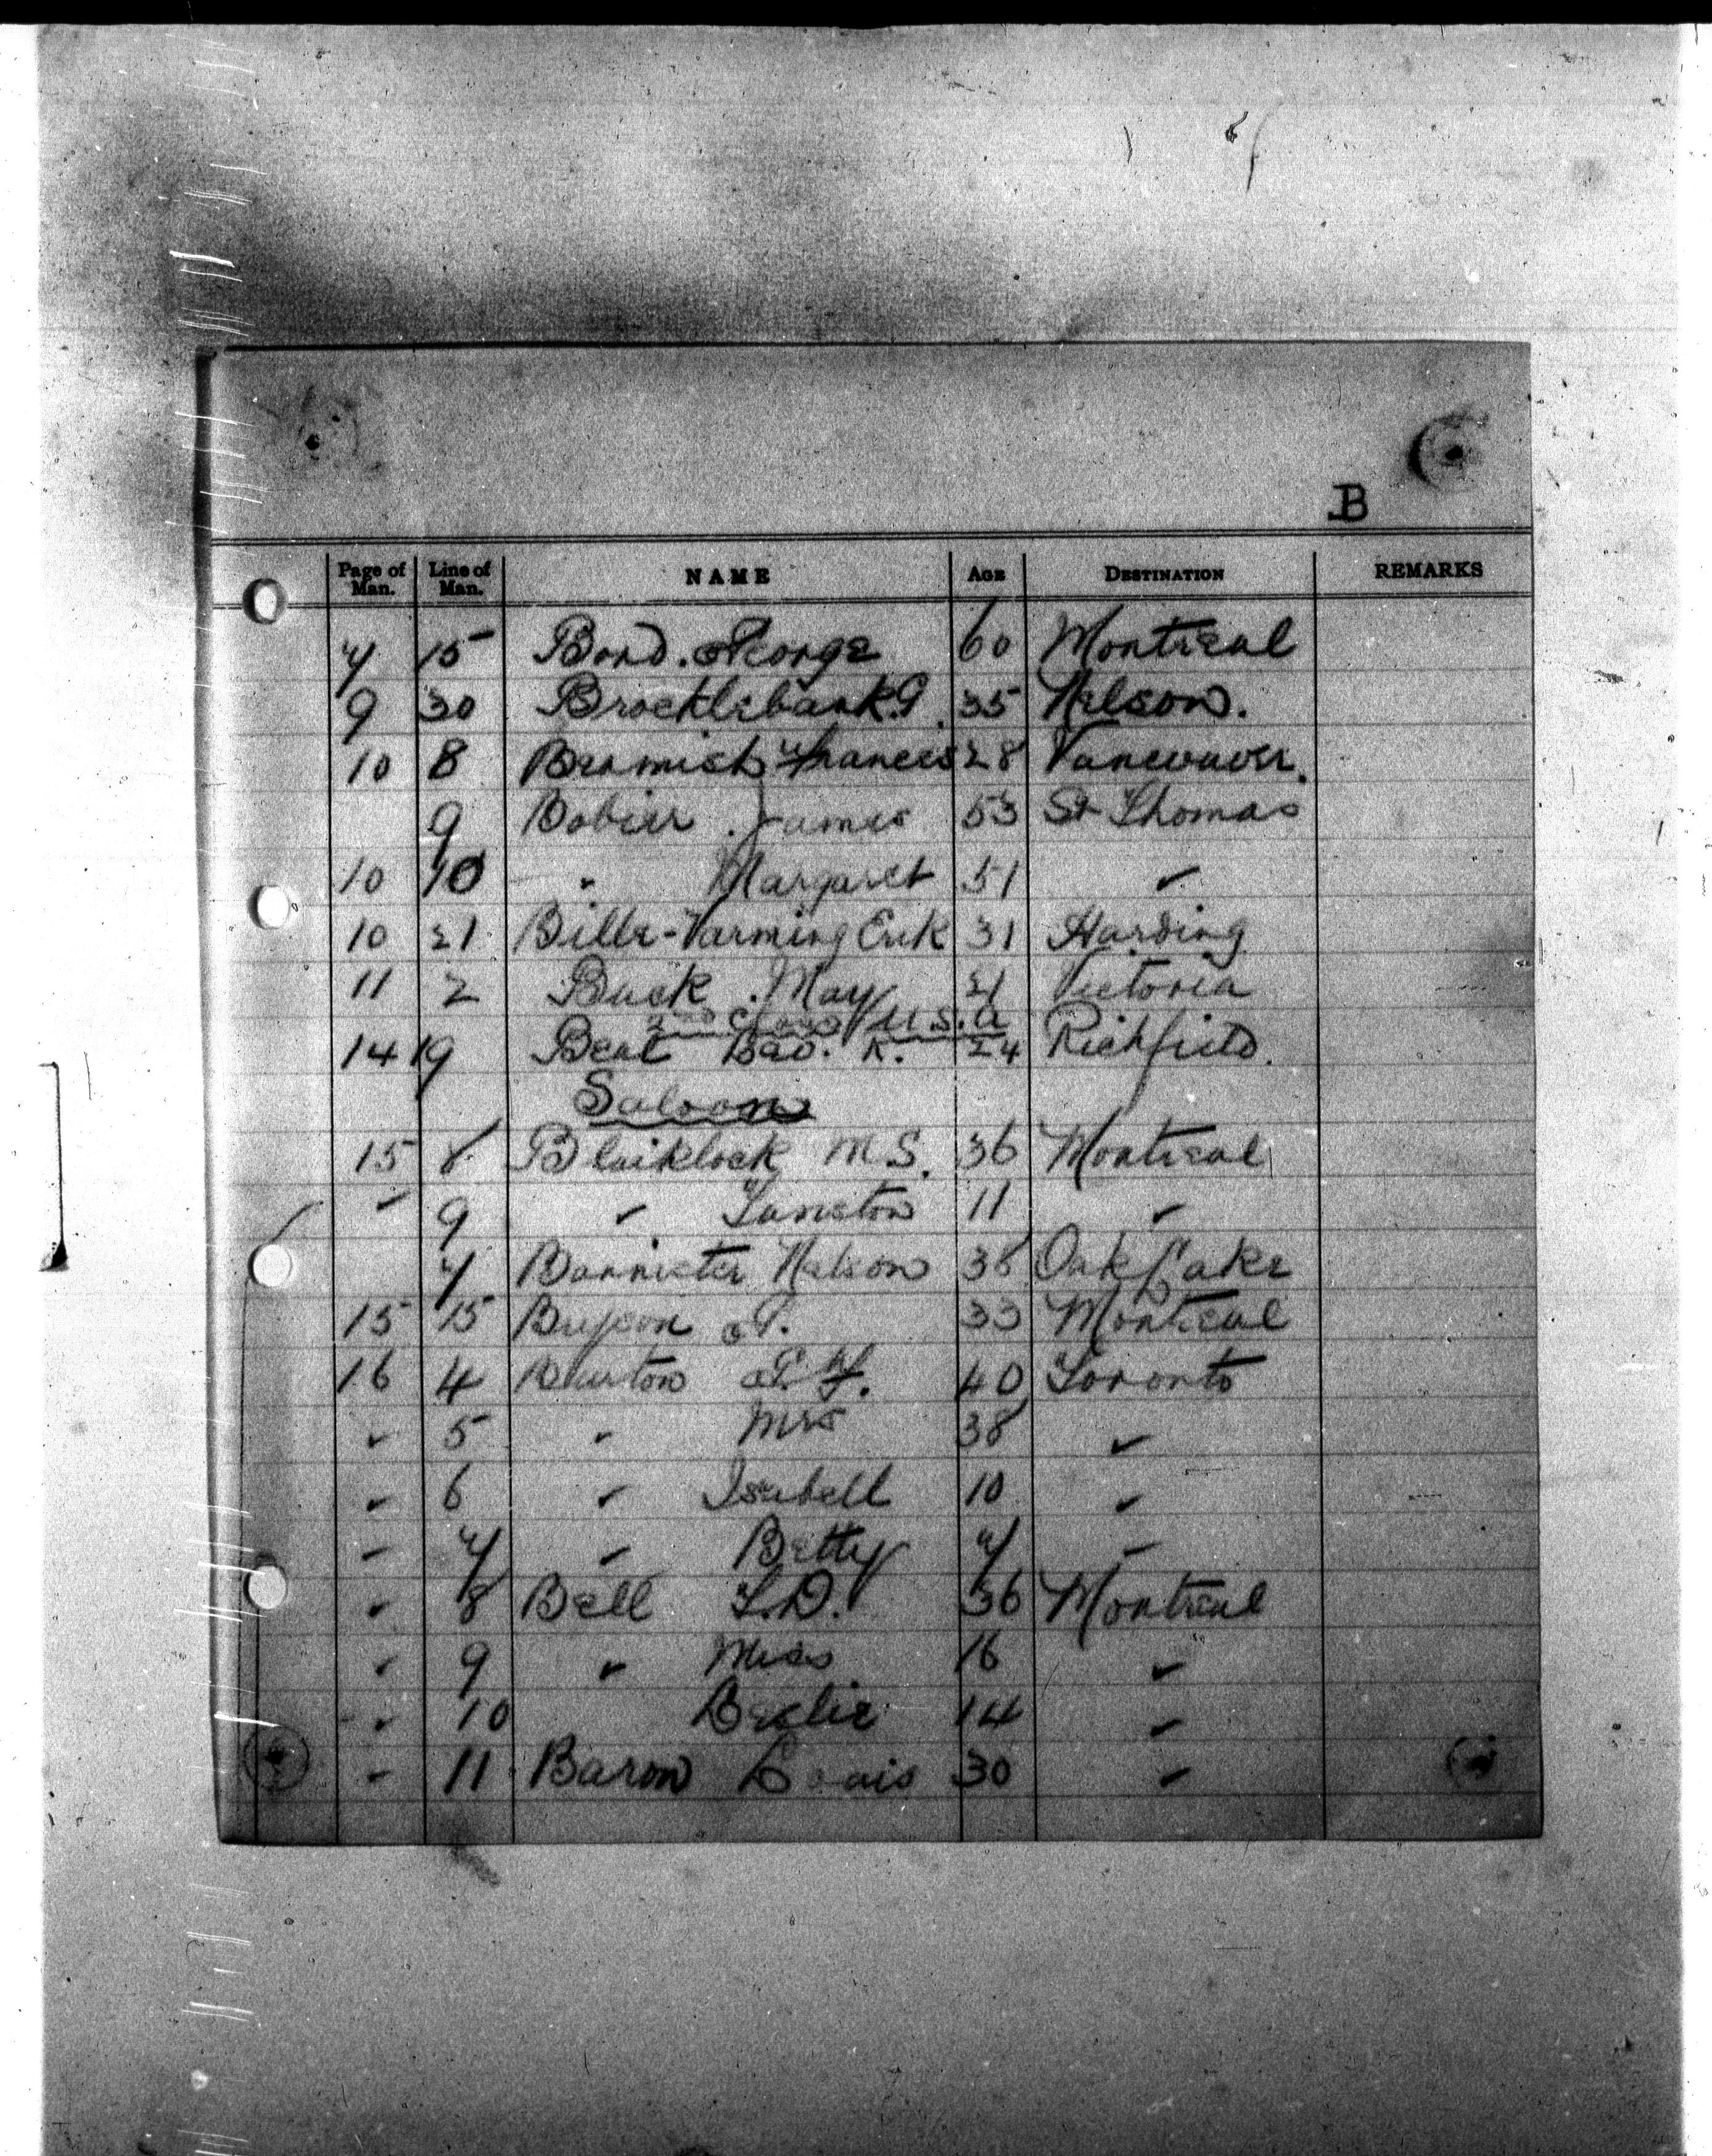 B
Page of Man. Line of Man. NAME AGE DESTINATION REMARKS
7 15 Bond. George 60 Montreal
9 30 Brocklebank. G. 35 Nelson.
10 8 Francis 28 Vancouver.
9 Bobier . James 53 St Thomas
10 10 " Margaret 51 "
10 21 Bille-Varming Erik 31 Harding
11 2 Buck . May 21 Victoria
2nd Class U.S.A
14 19 Beal Geo. R. 24 Richfield.
Saloon
15 8 Blaiklock M S. 36 Montreal
" 9 " 11 "
7 Bannister Nelson 38 Oak Lake
15 15 Bryson G. 33 Montreal
16 4 Burton 40 Toronto
" 5 " Mrs 38 "
" 6 " Isabell 10 "
" 7 " Betty 7 "
" 8 Bell 36 Montreal
" 9 " Miss 16 "
" 10 Leslie 14 "
" 11 Baron Louis 30 "